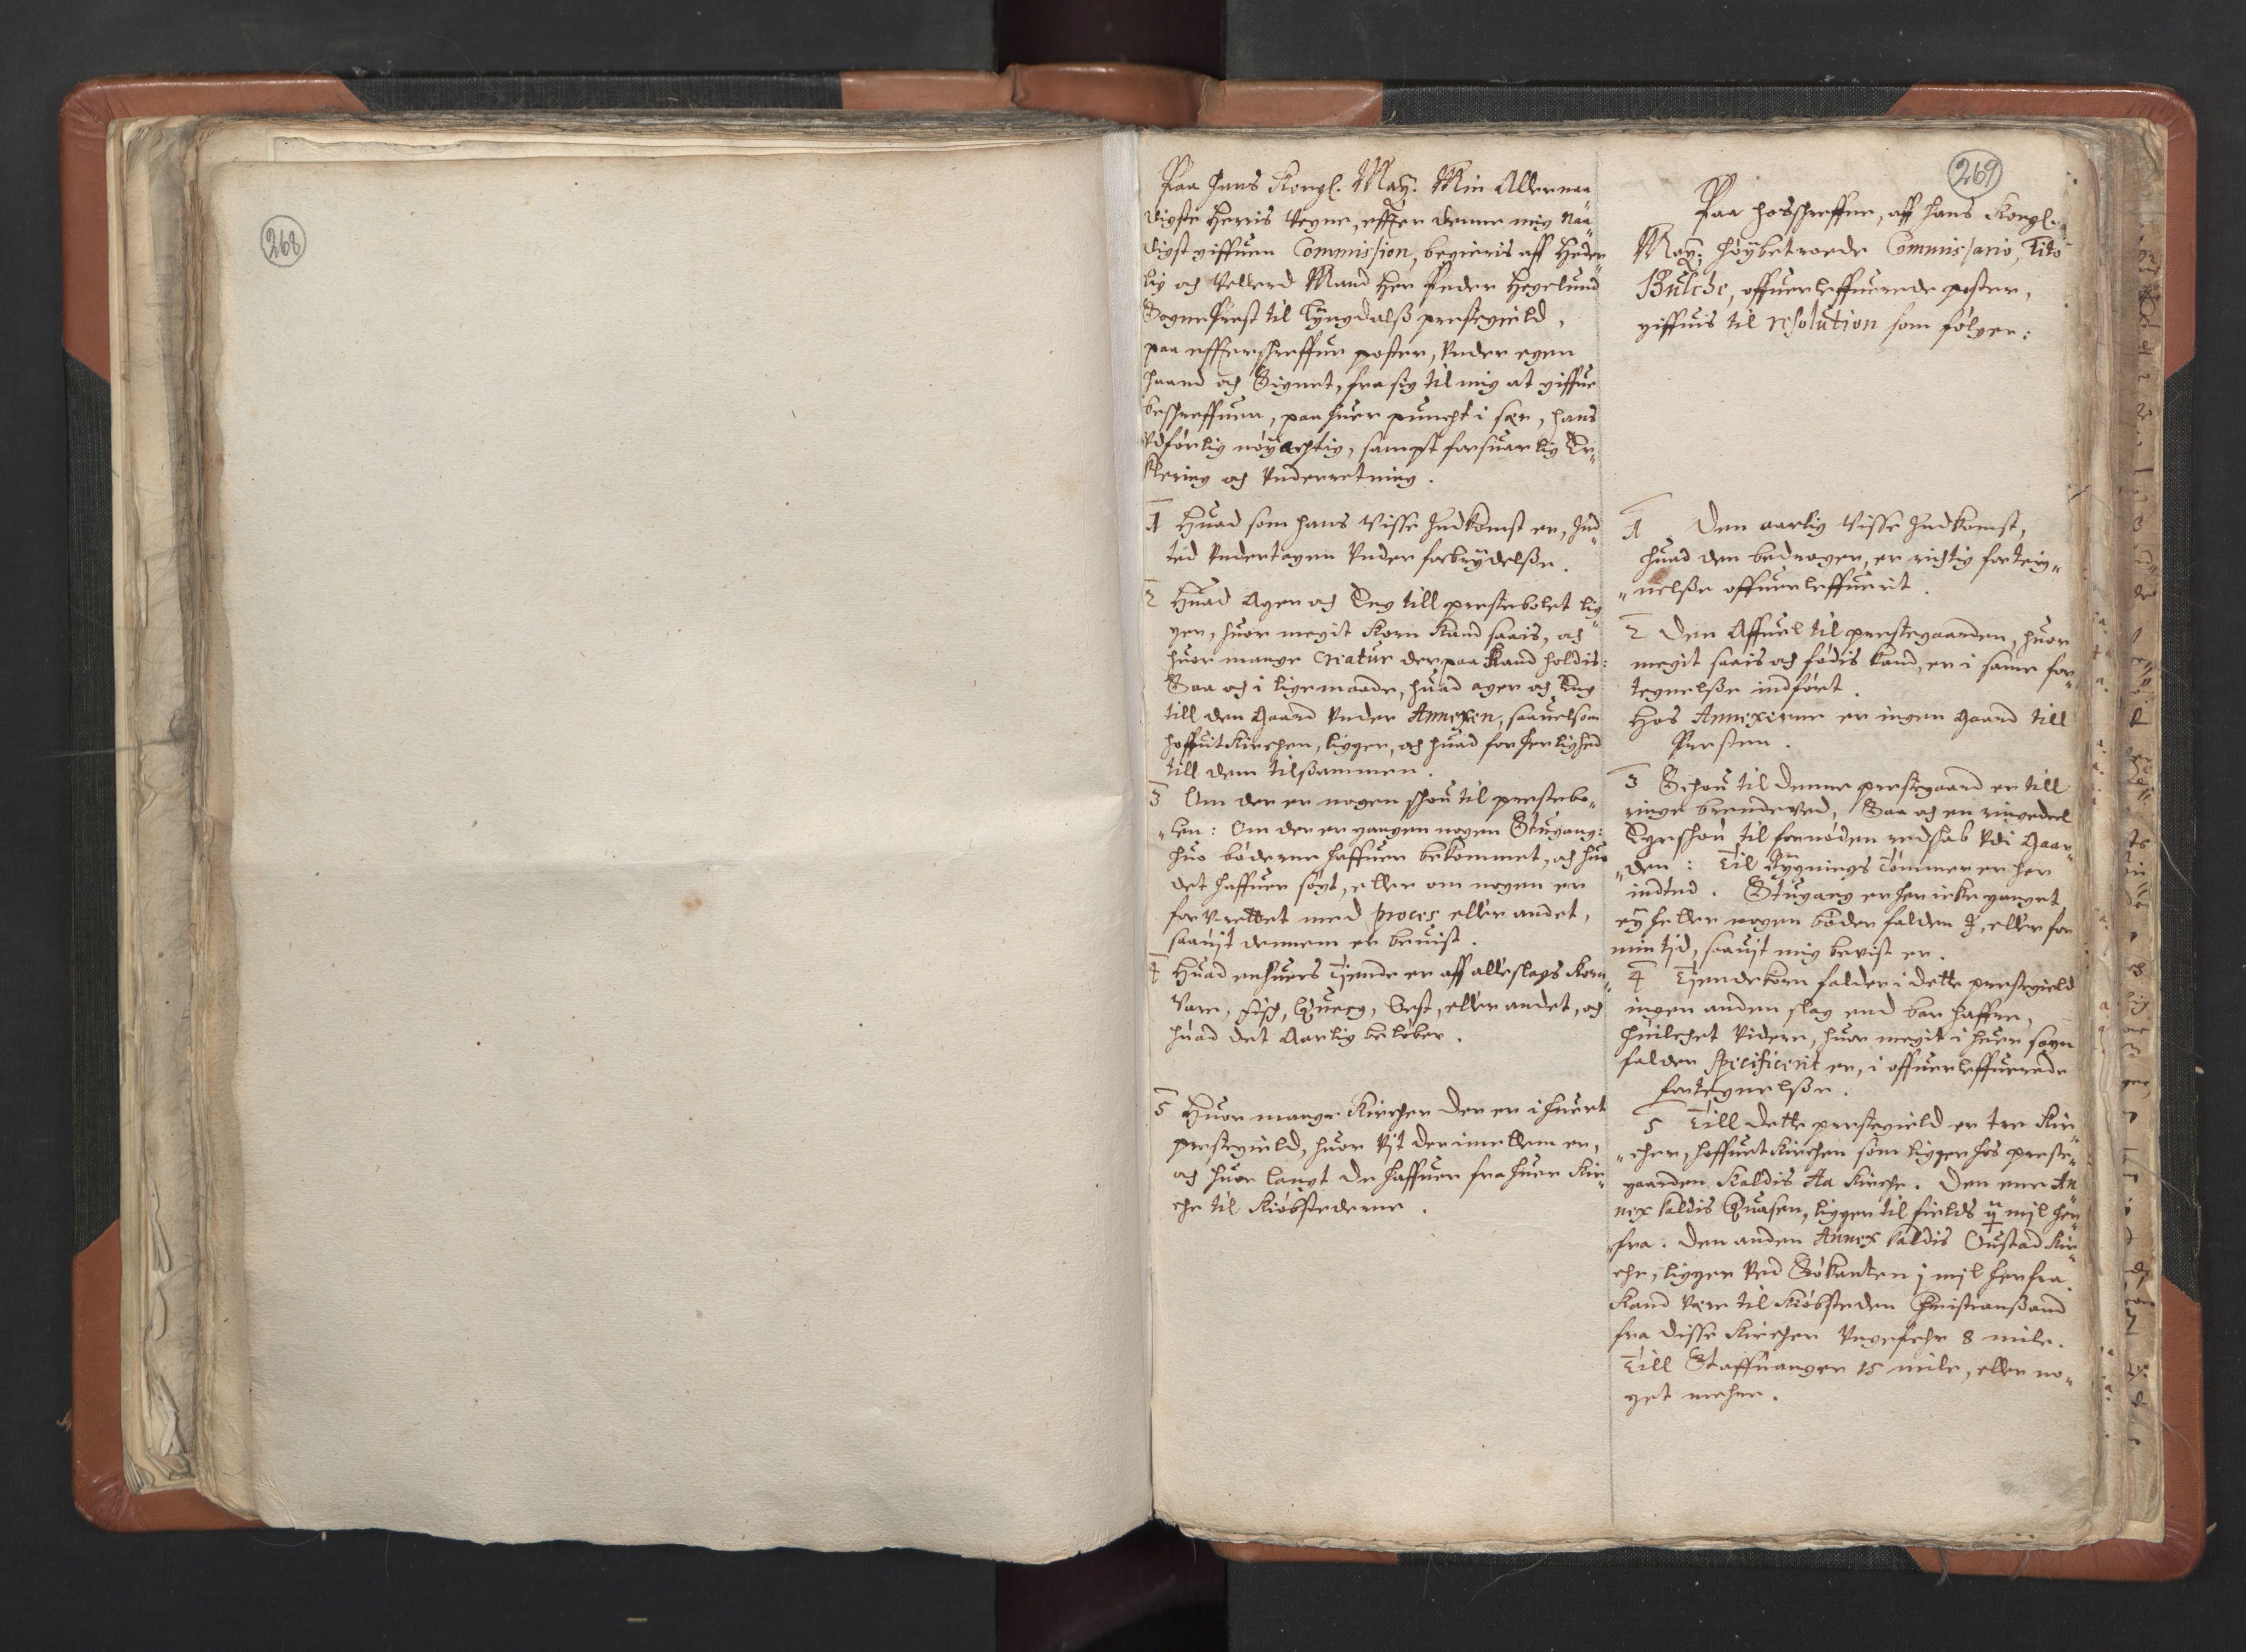 268
269
Paa Hans Kongl. May. Min Allernaa
digste Herris Vegne, effter denne mig naa„
digst giffuen Commission, begieris aff Heder„
lig och Vellerd Mand Her Peder Hegelund
SognePrest til Lyngdalß prestegield,
paa effterschreffne poster, Vnder egen
haand och Signet, fra sig til mig at giffue
beschreffuen, paa huer puncht i sær, hans
Vdførlig nøyachtig, sampt forsuarlig Er„
klering och Vnderretning.
1 Huad som hans Visse Indkomst er, Ind„
tid Vndertagen Vnder forbrydelße.
2 Huad Ager och Eng till prestebolet lig„
ger, huor megit Korn Kand saais, och
huor mange Creatur derpaa Kand holdis:
Saa och i ligemaade, huad ager och Eng
till den Gaard Vnder Annexen, saauelsom
hoffuitKirchen, ligger, och huad for herlighed
till dem tilsammen.
3 Om der er nogen schou til prestebo„
„len: Om der er gangen nogen Stugang:
huo bøderne haffuer bekommet, och huo
det haffuer søgt, eller om nogen er
forVrettet med proces eller andet,
saauit dennem er beuist.
4 Huad enhuers Tiende er aff alleslags Korn„
Vare, fisch, Quæg, Ost, eller andet, och
huad det Aarlig beløber.
5 Huor mange Kircher der er i huert
prestegield, huor Vijt der imellem er,
och huor langt de haffuer fra huer Kir„
che til Kiøbstederne.
Paa hosschreffne, aff Hans Kongl.
May: høybetroede Commissario, Tito
Bülche, offuerleffuerede poster,
giffuis til resolution som følger:
1 Den aarlig Visse Indkomst,
huad den bedrager, er richtig forteig„
„nelße offuerleffuerit.
2 Den Affuel til prestegaarden, huor
megit saais och fødis kand, er i samme for„
tegnelße indført.
Hos Annexerne er ingen Gaard till
Presten.
3 Schou til denne prestegaard er till
ringe brendeved, Saa och en ringedeel
Egeschou til fornøden redschab Vdi Gaar„
„den: Til Bygnings Tømmer er her
indted. Stugang er her icke ganget
ey heller nogen bøder falden i, eller for
min tid, saauit mig bevist er.
4 Tiendekorn falder i dette prestegield
ingen anden slag end bar haffre,
huilchet Videre, huor megit i huer sogn
falder Specificerit er, i offuerleffuerede
fortegnelße.
5 Till dette prestegield er tre Kir„
„cher, hoffuetKirchen som ligger hos preste„
gaarden Kaldis Aa Kirche. Den ene An„
nex kaldis Quaßen, ligger til fields ij mijl her„
„fra. Den anden Annex kaldis Oustad Kir„
che, ligger Ved Søkanten j mijl herfra.
Kand Være til Kiøbsteden Christiansand
fra disse Kircher Vngefehr 8 mile.
Till Staffuanger 15 mile, eller no„
get mehre.